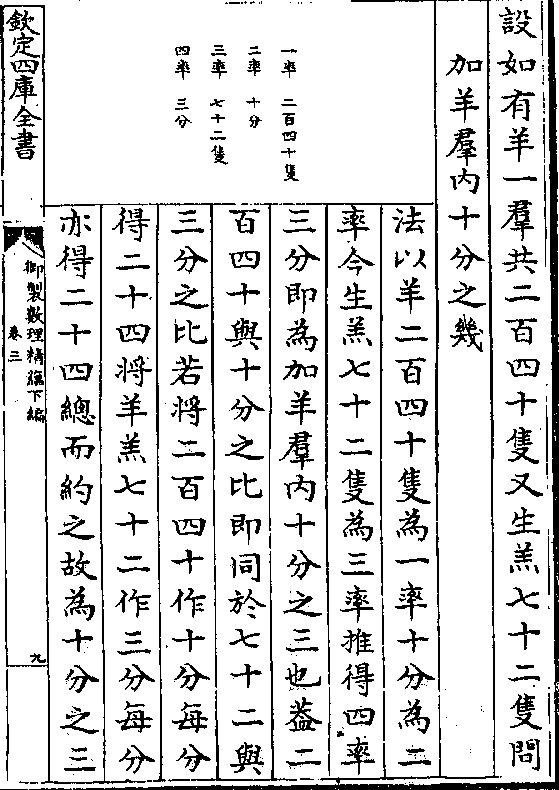 設如有羊一羣共二百四十隻又生羔七十二隻問
加羊羣内十分之幾
一率　二百四十隻
二率　十分
三率　七十二隻
四率　三分
法以羊二百四十隻為一率十分為二
率今生羔七十二隻為三率推得四率
三分即為加羊羣内十分之三也葢二
百四十與十分之比即同於七十二與
三分之比若將二百四十作十分每分
得二十四將羊羔七十二作三分每分
亦得二十四總而約之故為十分之三
欽定四庫全書
御製數理精藴下編
卷三
九